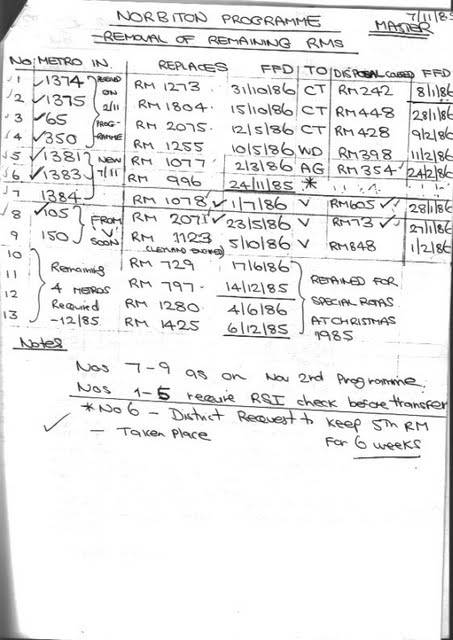 NORBITON PROGRAMME 7/11/85
REMOVAL OF REMAINING RMS MASTER
No METRO IN. REPLACES FFD TO DISPOSAL CAUSED FFD
✓1 ✓1374 BASED RM 1273 31/10/86 CT RM242 8/1/86
✓2 ✓1375 ON 2/11 RM 1804 15/10/86 CT RM448 28/1/86
✓3 ✓65 PROG- RM 2075 12/5/86 CT RM428 9/2/86
✓4 ✓350 RAMME RM 1255 10/5/86 WD RM398 11/2/86
✓5 ✓1381 NEW RM 1077 2/3/86 AG RM354✓ 24/2/86
✓6 ✓1383 7/11 RM 996 24/11/85 *
✓7 1384 RM 1078✓ 1/7/86 V RM605✓ 28/1/86
✓8 ✓105 FROM RM 2071✓ 23/5/86 V RM73✓ 27/1/86
9 150 'V' SOON RM 1123 5/10/86 V RM848 1/2/86
10 Remaining RM 729 17/6/86 RETAINED FOR
11 4 METROS RM 797. 14/12/85 SPECIAL ROTAS
12 Required RM 1280 4/6/86 AT CHRISTMAS
13 -12/85 RM 1425 6/12/85 1985
Notes
Nos 7-9 as on Nov 2nd Programme.
Nos 1-5 require RSI check before transfer
*No 6 - District Request to keep 5th RM
✓ - Taken Place For 6 weeks